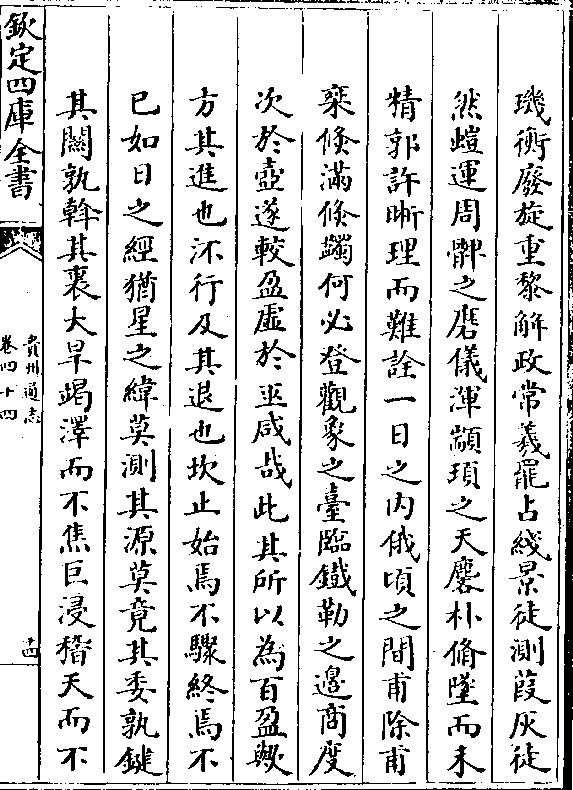 璣衡廢旋重黎解政常羲罷占綫景徒測葭灰徒
然螘運周髀之磨儀渾顓頊之天麐朴脩墜而未
精郭許晰理而難詮一日之内俄頃之間甫除甫
乗倐滿倐蠲何必登觀象之臺臨鐵勒之邉商度
次於壺遂較盈虚於巫咸哉此其所以為百盈歟
方其進也沠行及其退也坎止始焉不驟終焉不
已如日之經猶星之緯莫測其源莫竟其委孰鍵
其闗孰斡其裏大旱竭澤而不焦巨浸稽天而不
欽定四庫全書
貴州通志
卷四十四
十四